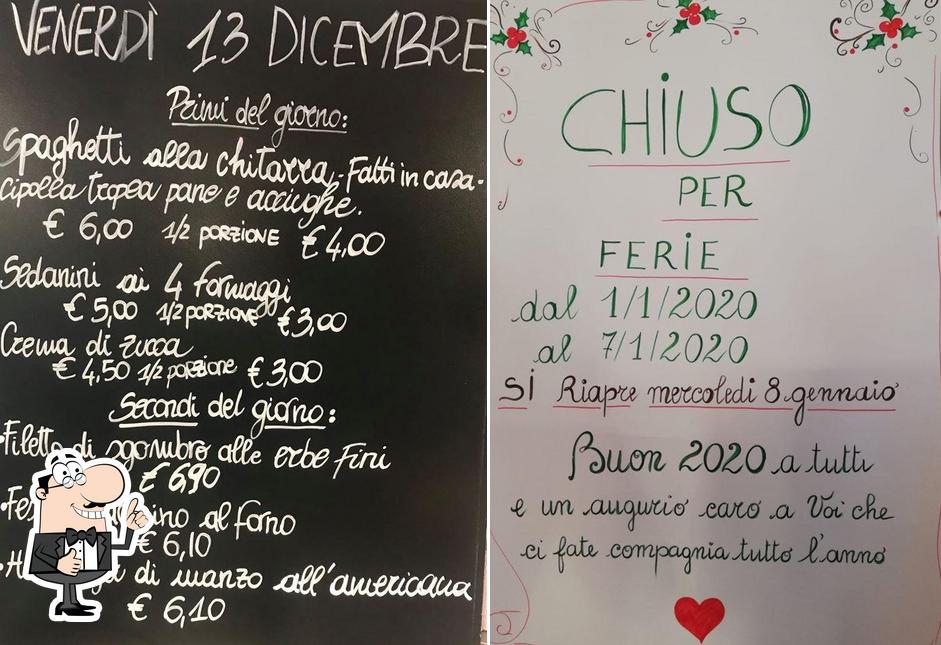 VENERDÌ 13 DICEMBRE
Primi del giorno:
Spaghetti alla chitarra - Fatti in casa -
cipolla tropea pane e acciughe.
€ 6,00 1/2 PORZIONE € 4,00
Sedanini ai 4 formaggi
€ 5,00 1/2 PORZIONE € 3,00
Crema di zucca
€ 4,50 1/2 porzione € 3,00
Secondi del giorno:
• Filetto di sgombro alle erbe fini
€ 6,90
al forno
€ 6,10
di manzo all'americana
€ 6,10
CHIUSO
PER
FERIE
dal 1/1/2020
al 7/1/2020
SI Riapre mercoledì 8 gennaio
Buon 2020 a tutti
e un augurio caro a Voi che
ci fate compagnia tutto l'anno